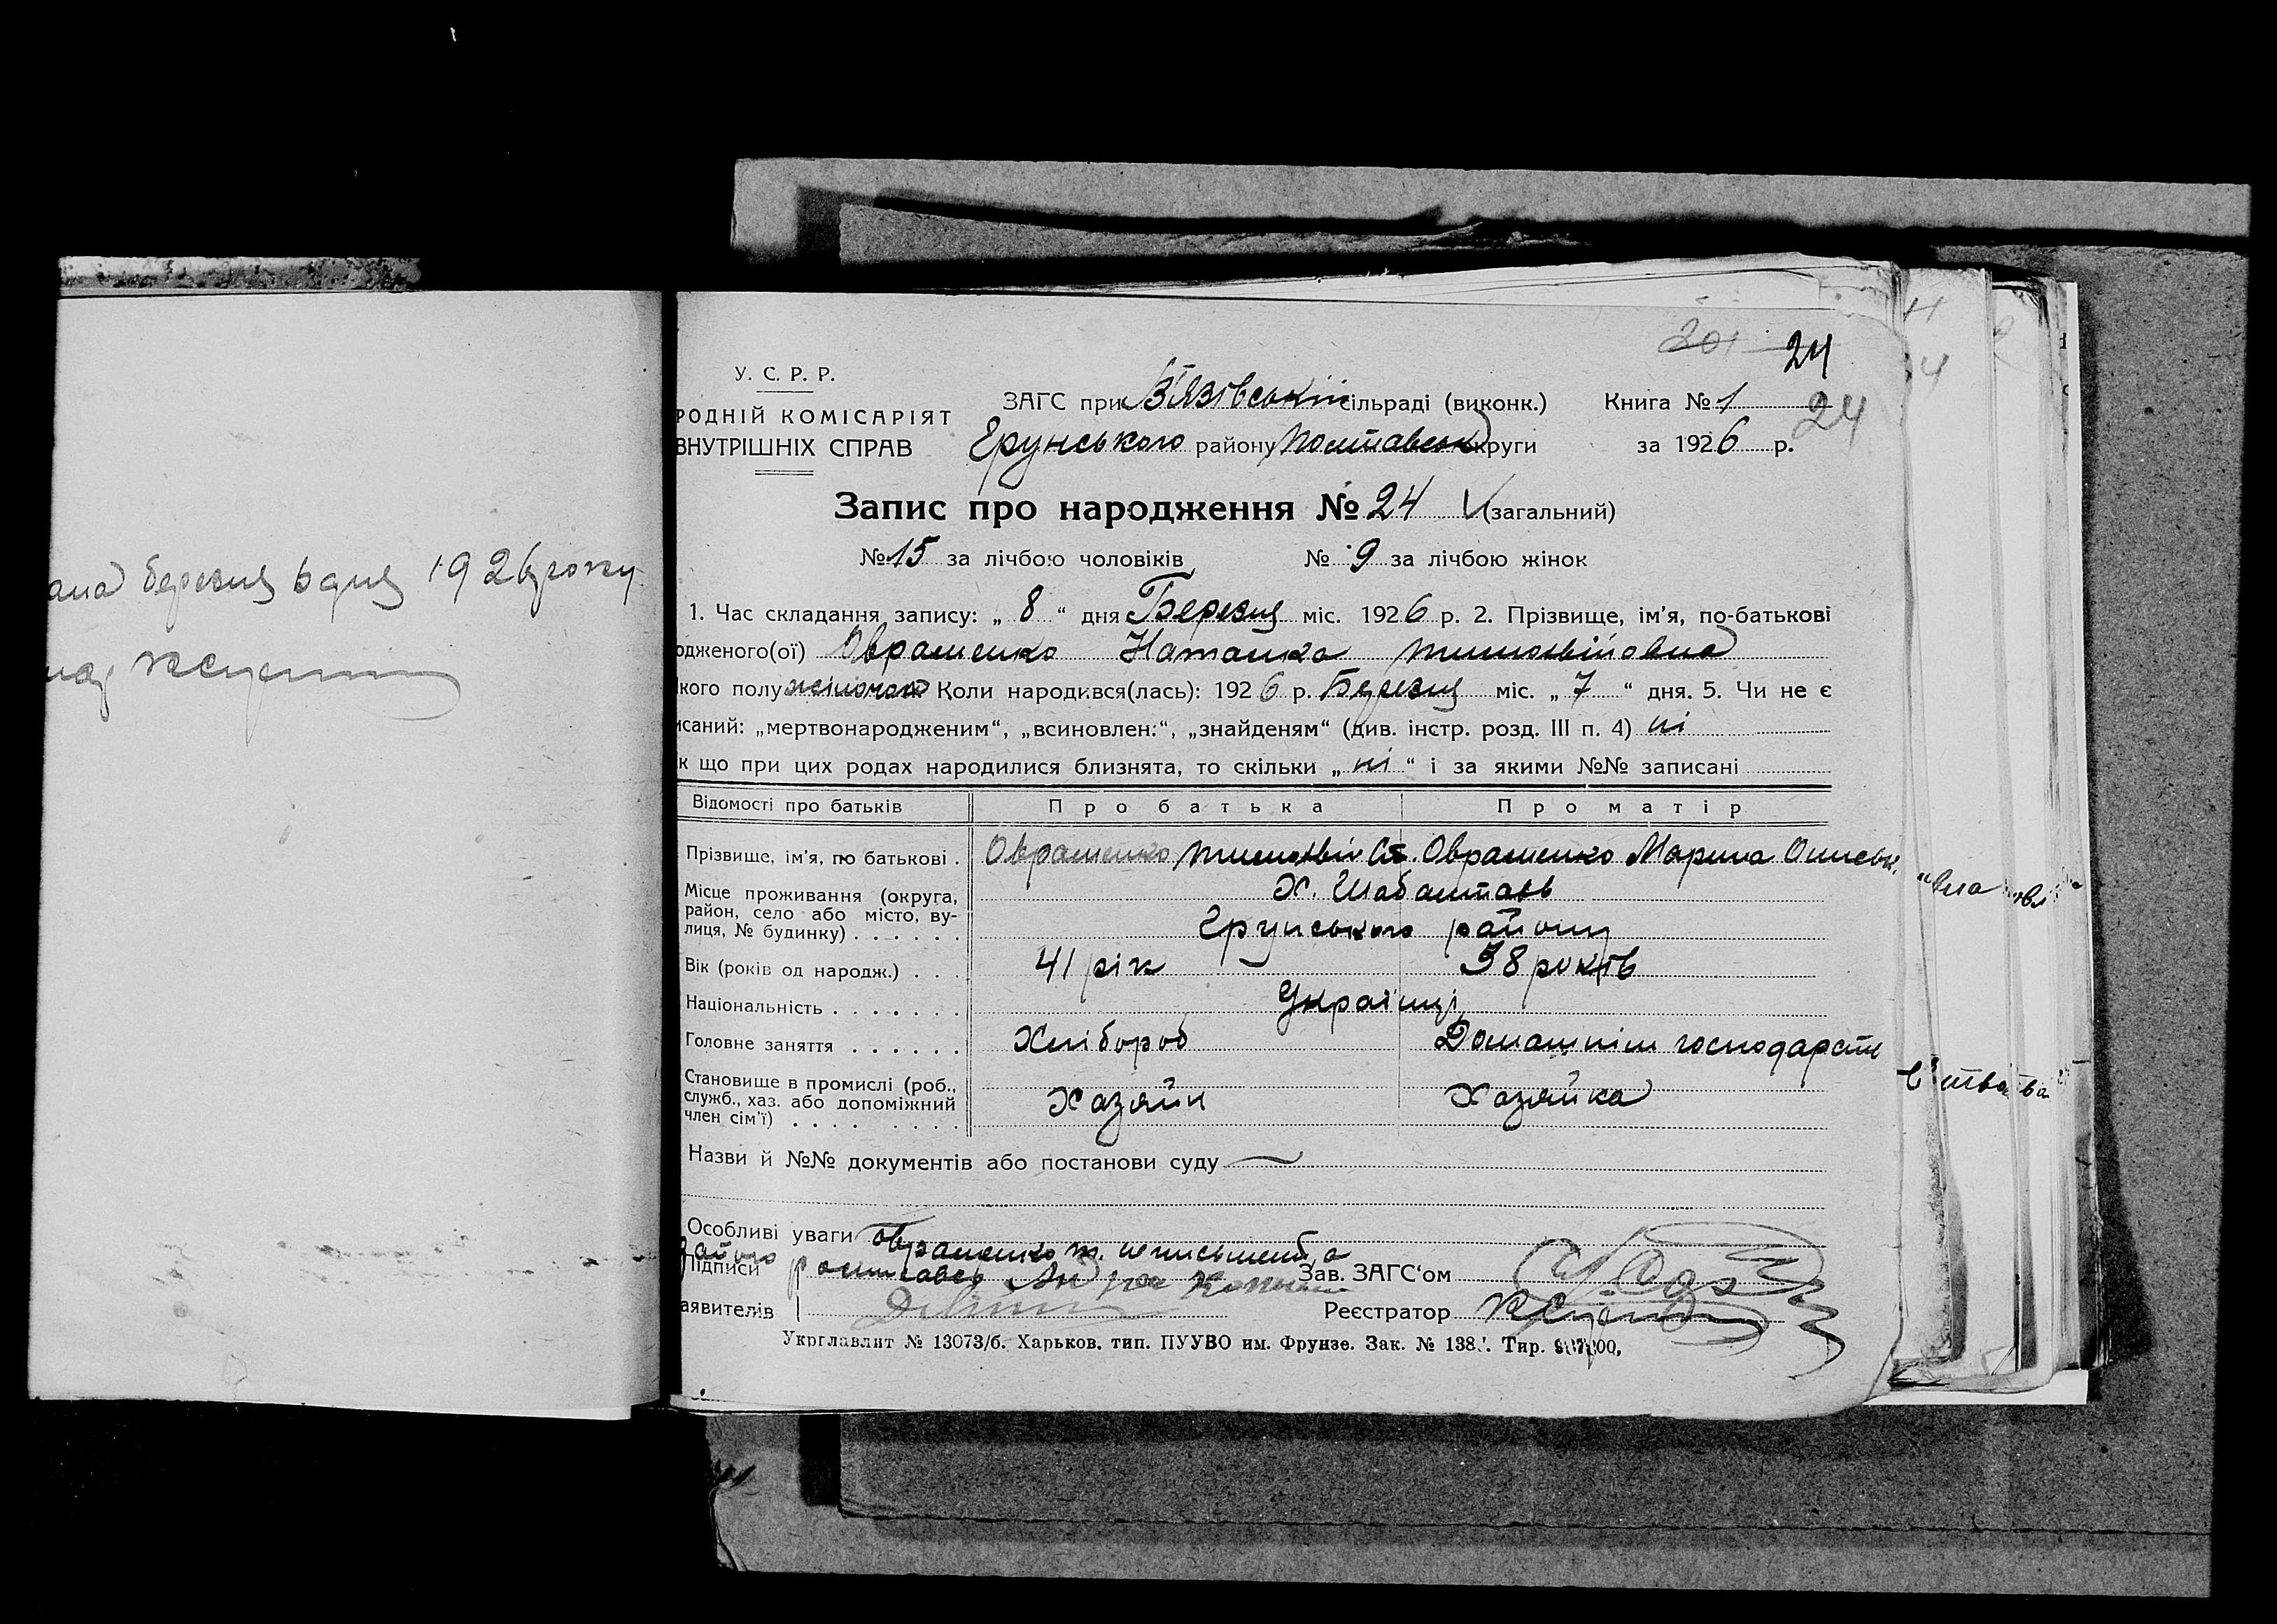 березня 6 дня 1926 року
201 24
У. С. Р. Р.
ЗАГС при В'язівській сільраді (виконк.) Книга № 1 24
РОДНІЙ КОМІСАРІЯТ
ВНУТРІШНІХ СПРАВ Ерунського району Полтавськ округи за 1926 р.
Запис про народження № 24 (загальний)
№ 15 за лічбою чоловіків № 9 за лічбою жінок
1. Час складання запису: „ 8 “ дня Березня міс. 1926 р. 2. Прізвище, ім'я, по-батькові
одженого(ої) Овраменко Наталка Тимохвійовна
кого полу жіночого Коли народився(лась): 1926 р. Березня міс. „ 7 “ дня. 5. Чи не є
исаний: „мертвонародженим“, „всиновлен.“, „знайденям“ (див. інстр. розд. III п. 4) ні
к що при цих родах народилися близнята, то скільки „ ні “ і за якими №№ записані
Відомості про батьків Про батька Про матір
Прізвище, ім'я, по батькові . Овраменко Тимохвій Ст. Овраменко Марина Ониськ.
Місце проживання (округа, район, село або місто, вулиця, № будинку) . . . . . . Х. Шабалтаєв
Ерунського району
Вік (років од народж.) . . . 41 рік 38 років
Національність . . . . . . . Українці
Головне заняття . . . . . . Хлібороб Домашнім господарств
Становище в промислі (роб., служб., хаз. або допоміжний член сім'ї) . . . . . . . . Хазяїн Хазяйка
Назви й №№ документів або постанови суду
Особливі уваги Овраменко т. неписьменний а
за його
Підписи росписавсь Зав. ЗАГС‘ом
аявителів Реєстратор
Укрглавлит № 13073/б. Харьков. тип. ПУУВО им. Фрунзе. Зак. № 138